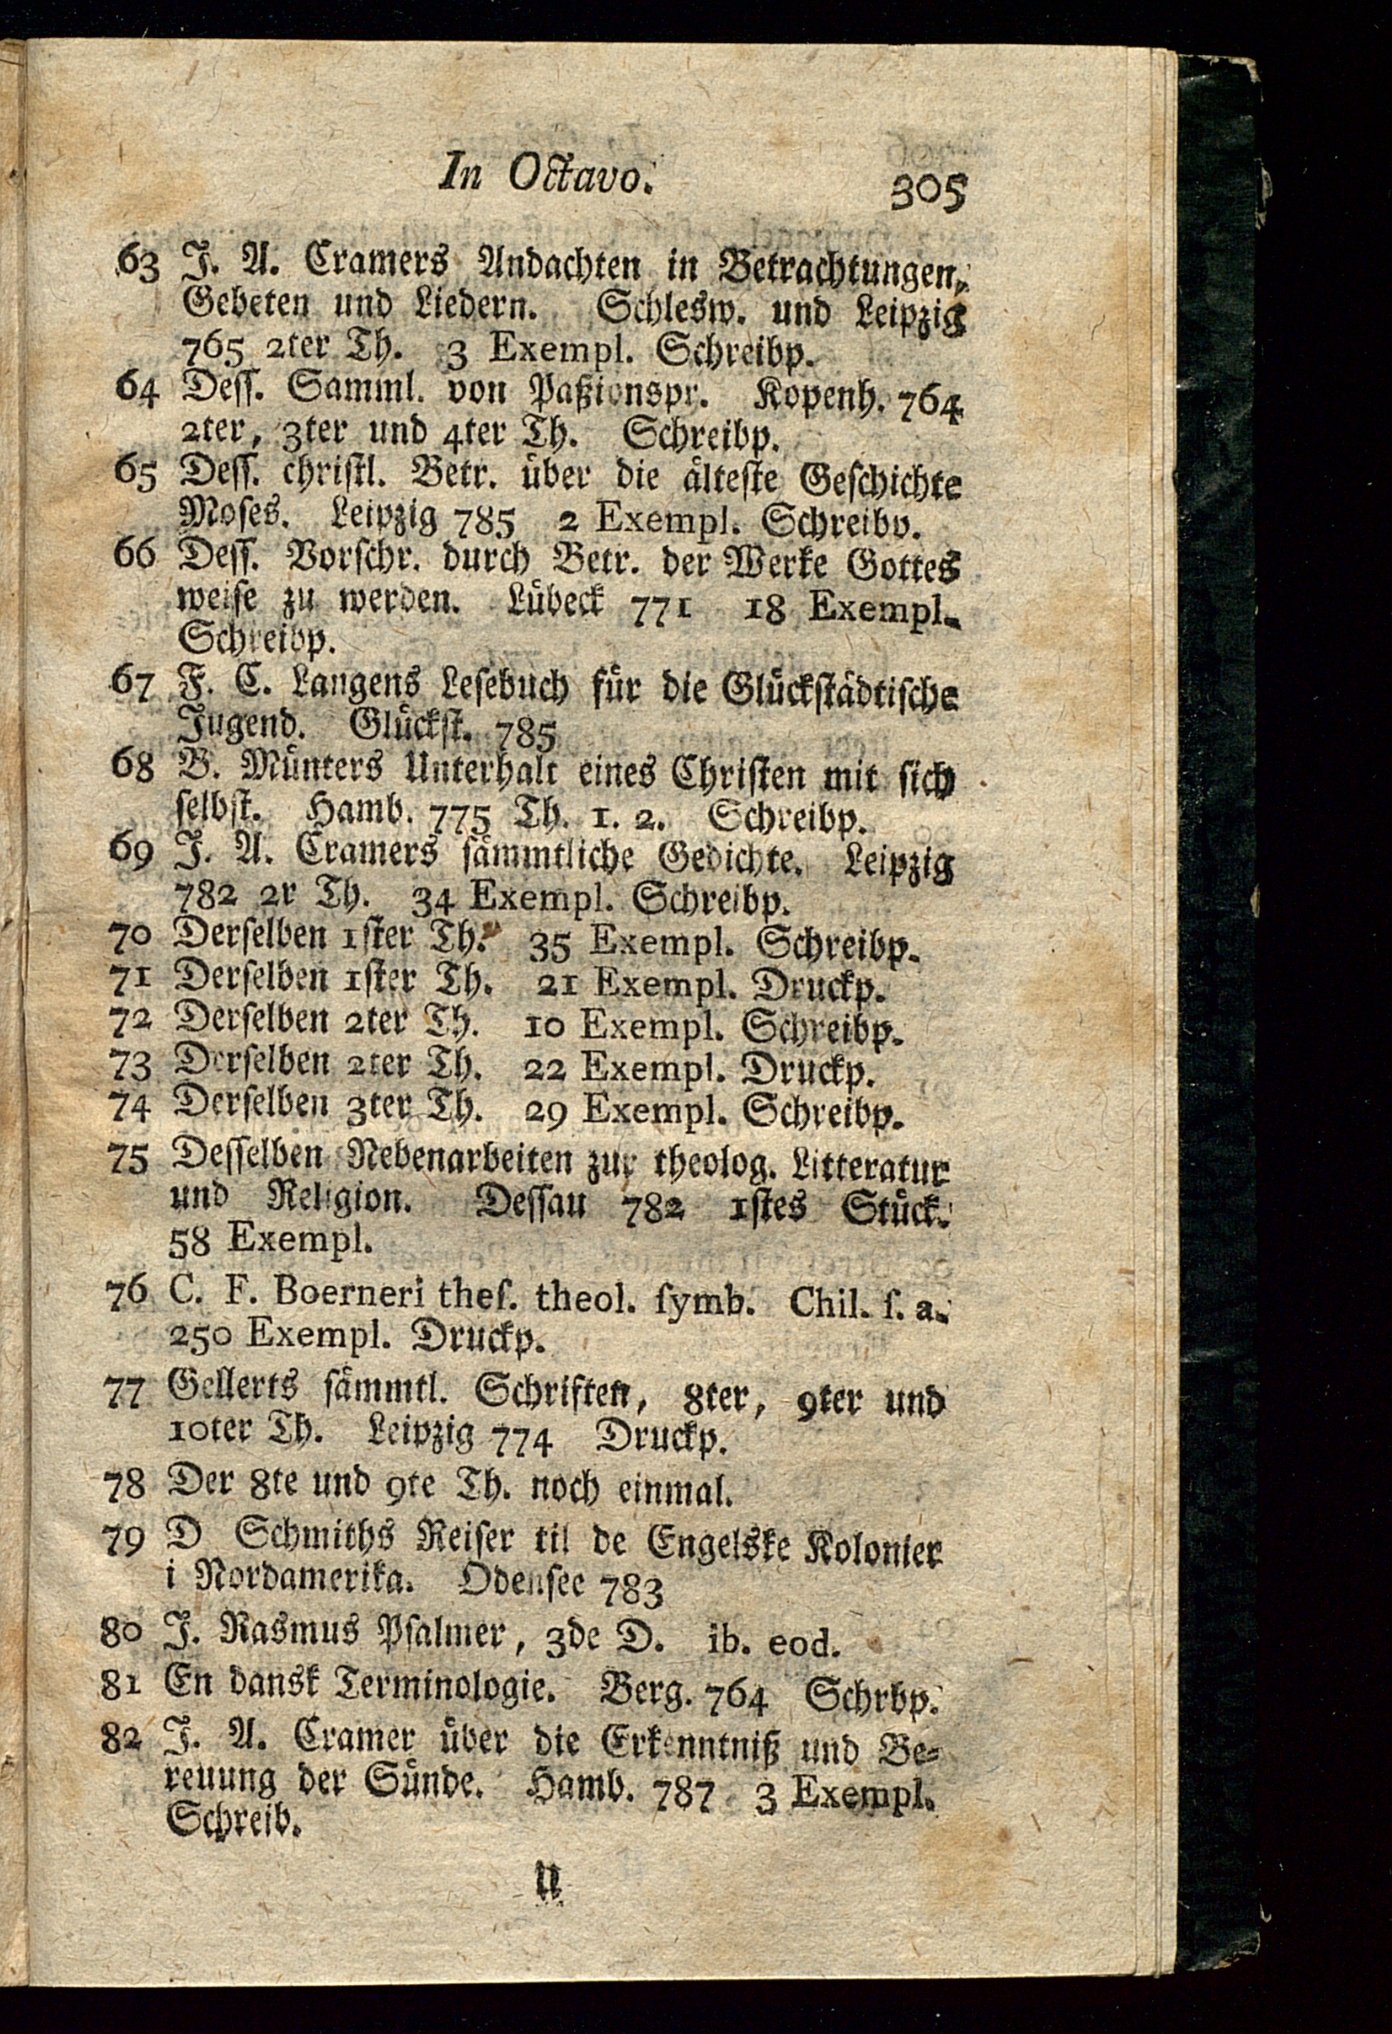 In Octavo.
305
63 J. A. Cramers Andachten in Betrachtungen,
Gebeten und Liedern. Schlesw. und Leipzig
765 2ter Th. 3 Exempl. Schreibp.
64 Deſſ. Samml. von Paßionspr. Kopenh. 764
2ter, 3ter und 4ter Th. Schreibp.
65 Deſſ. chriſtl. Betr. über die älteſte Geſchichte
Moſes. Leipzig 785 2 Exempl. Schreibp.
66 Deſſ. Vorſchr. durch Betr. der Werke Gottes
weiſe zu werden. Lübeck 771 18 Exempl.
Schreibp.
67 F. C. Langens Leſebuch für die Glückſtädtiſche
Jugend. Glückſt. 785
68 B. Münters Unterhalt eines Chriſten mit ſich
ſelbſt. Hamb. 775 Th. 1. 2. Schreibp.
69 J. A. Cramers ſämmtliche Gedichte. Leipzig
782 2r Th. 34 Exempl. Schreibp.
70 Derſelben 1ſter Th. 35 Exempl. Schreibp.
71 Derſelben 1ſter Th. 21 Exempl. Druckp.
72 Derſelben 2ter Th. 10 Exempl. Schreibp.
73 Derſelben 2ter Th. 22 Exempl. Druckp.
74 Derſelben 3ter Th. 29 Exempl. Schreibp.
75 Deſſelben Nebenarbeiten zur theolog. Litteratur
und Religion. Deſſau 782 1ſtes Stück.
58 Exempl.
76 C. F. Boerneri theſ. theol. ſymb. Chil. ſ. a.
250 Exempl. Druckp.
77 Gellerts ſämmtl. Schriften, 8ter, 9ter und
10ter Th. Leipzig 774 Druckp.
78 Der 8te und 9te Th. noch einmal.
79 D Schmiths Reiſer til de Engelske Kolonier
i Nordamerika. Odenſee 783
80 J. Rasmus Pſalmer, 3de D. ib. eod.
81 En dansk Terminologie. Berg. 764 Schrbp.
82 J. A. Cramer über die Erkenntniß und Be-
reuung der Sünde. Hamb. 787 3 Exempl.
Schreib.
U